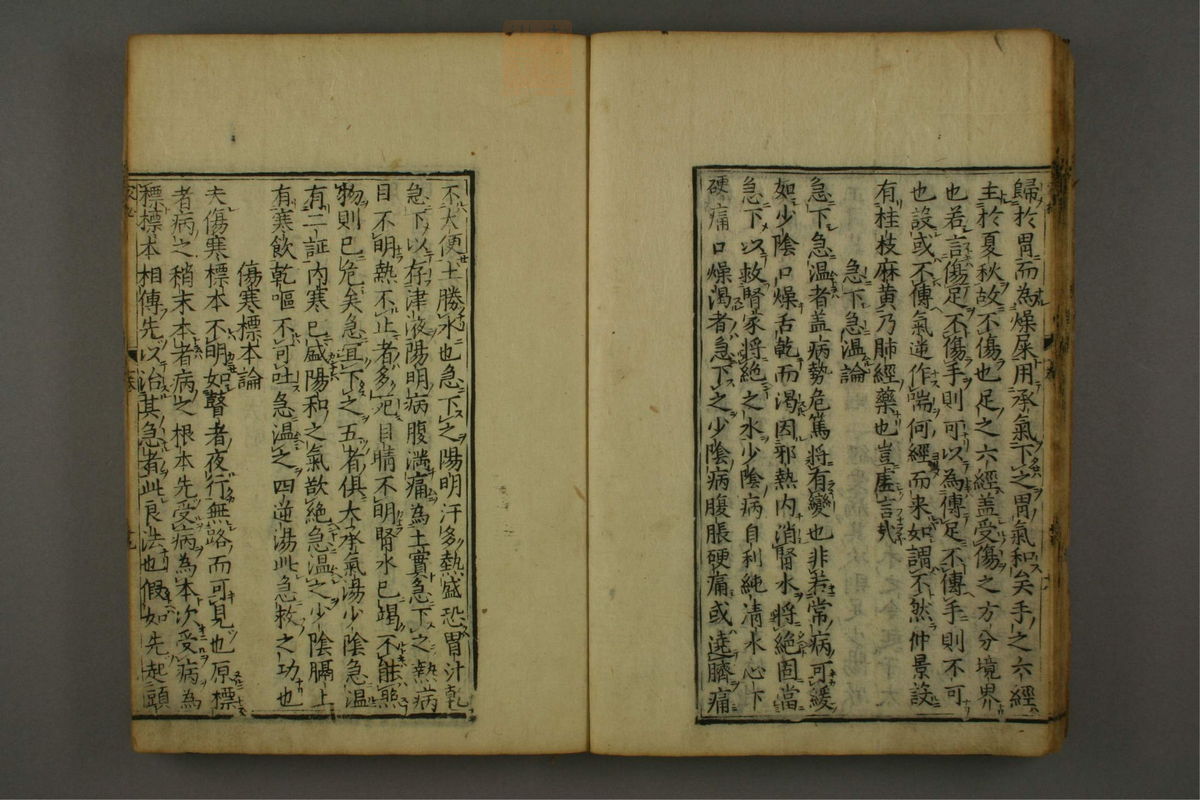 歸於胃而為燥屎用承氣下之胃氣和矣手之六經
主於夏秋故不傷也足之六經盖受傷之方分境界
也若言傷足不傷手則可以為傳足不傳手則不可
也設或不傳氣逆作喘何經而来如謂不然仲景設
有桂枝麻黄乃肺經藥也豈虛言㢤
急下急温論
急下急温者盖病勢危篤將有變也非若常病可緩
如少陰口燥舌乾而渴因邪熱內消腎水將絕固當
急下以救腎家將絕之水少陰病自利純清水心下
硬痛口燥渴者急下之少陰病腹脹硬痛或遶臍痛
不大便土勝水也急下之陽明汗多熱盛恐胃汁乾
急下以存津液陽明病腹滿痛為土實急下之熱病
目不明熱不止者多死目睛不明腎水已竭不能照
物則已危矣急宜下之五者俱大承氣湯少陰急温
有二証內寒已盛陽和之氣欲絕急温之少陰膈上
有寒飲乾嘔不可吐急温之四逆湯此急救之功也
傷寒標本論
夫傷寒標本不明如瞽者夜行無路而可見也原標
者病之稍末本者病之根本先受病為本次受病為
標標本相傳先以治其急者此良法也假如先起頭